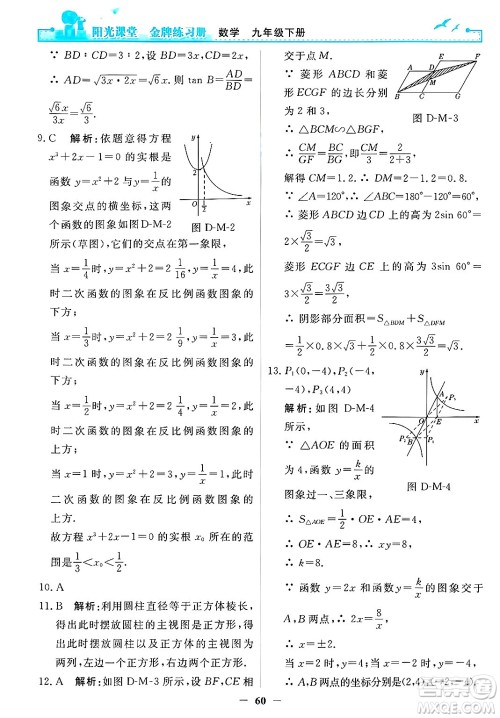 阳光课堂 金牌练习册 数学 九年级下册
∵ BD : CD = 3 : 2, ∴ BD = √6x.
∴ AD = √(3x·2x) = √6x. 则 tan B = AD/BD =
√6x/√6x = √6/3.
9. C 解析: 依题意得方程
x³+2x-1=0 的实根是
函数 y=x²+2 与 y=1/x 的
图象交点的横坐标, 这两个
函数的图象如图 D-M-2
所示(草图), 它们的交点在第一象限,
当 x=1/4 时, y=x²+2=2 1/16, y=1/x=4, 此
时二次函数的图象在反比例函数图象的
下方;
当 x=1/3 时, y=x²+2=2 1/9, y=1/x=3, 此
时二次函数的图象在反比例函数图象的
下方;
当 x=1/2 时, y=x²+2=2 1/4, y=1/x=2, 此
时二次函数的图象在反比例函数图象的
上方;
当 x=1 时, y=x²+2=3, y=1/x=1, 此时
二次函数的图象在反比例函数的图象的
上方.
故方程 x³+2x-1=0 的实根 x₀ 所在的
范围是 1/3<x₀<1/2.
10. A
11. B 解析: 利用圆柱直径等于正方体棱长, 得
出此时摆放圆柱的主视图为正方形, 得
出圆柱以及正方体的主视图为正方形,
为两列, 左边是正方形, 右边是正方形.
12. A 解析: 如图 D-M-3, 设 BF, CE 相
y
O
1/2
x
图 D-M-2
交于点 M.
∵ 菱形 ABCD 和菱形
ECGF 的边长分别为
2 和 3,
∴ △BCM∽△BGF,
∴ CM/GF = BC/BG, 即 CM/3 = 2/(2+3).
解得 CM=1.2. ∴ DM=2-1.2=0.8.
∵ ∠A=120°, ∴ ∠ABC=60°.
∴ 菱形 ABCD 边 CD 上的高为 2sin 60°=
2×√3/2=√3,
菱形 ECGF 边 CE 上的高为 3sin 60°=
3×√3/2=3√3/2.
∴ 阴影部分面积=S△BDM+S△DFM=
1/2×0.8×√3+1/2×0.8×3√3/2=√3.
A D E F B C G M
图 D-M-3
13. P₁(0,-4), P₂(-4,
-4), P₃(4,4)
解析: 如图 D-M-4,
∵ △AOE 的面积
为 4, 函数 y=k/x 的
图象过一、三象限,
∴ S△AOE=1/2·OE·AE=4.
∴ OE·AE=8. ∴ xy=8. ∴ k=8.
∵ 函数 y=2x 和函数 y=k/x 的图象交于
A, B 两点, ∴ 2x=8/x.
∴ x=±2.
∴ 两点的坐标分别是(2,4),(-2,-4).
图 D-M-4
60